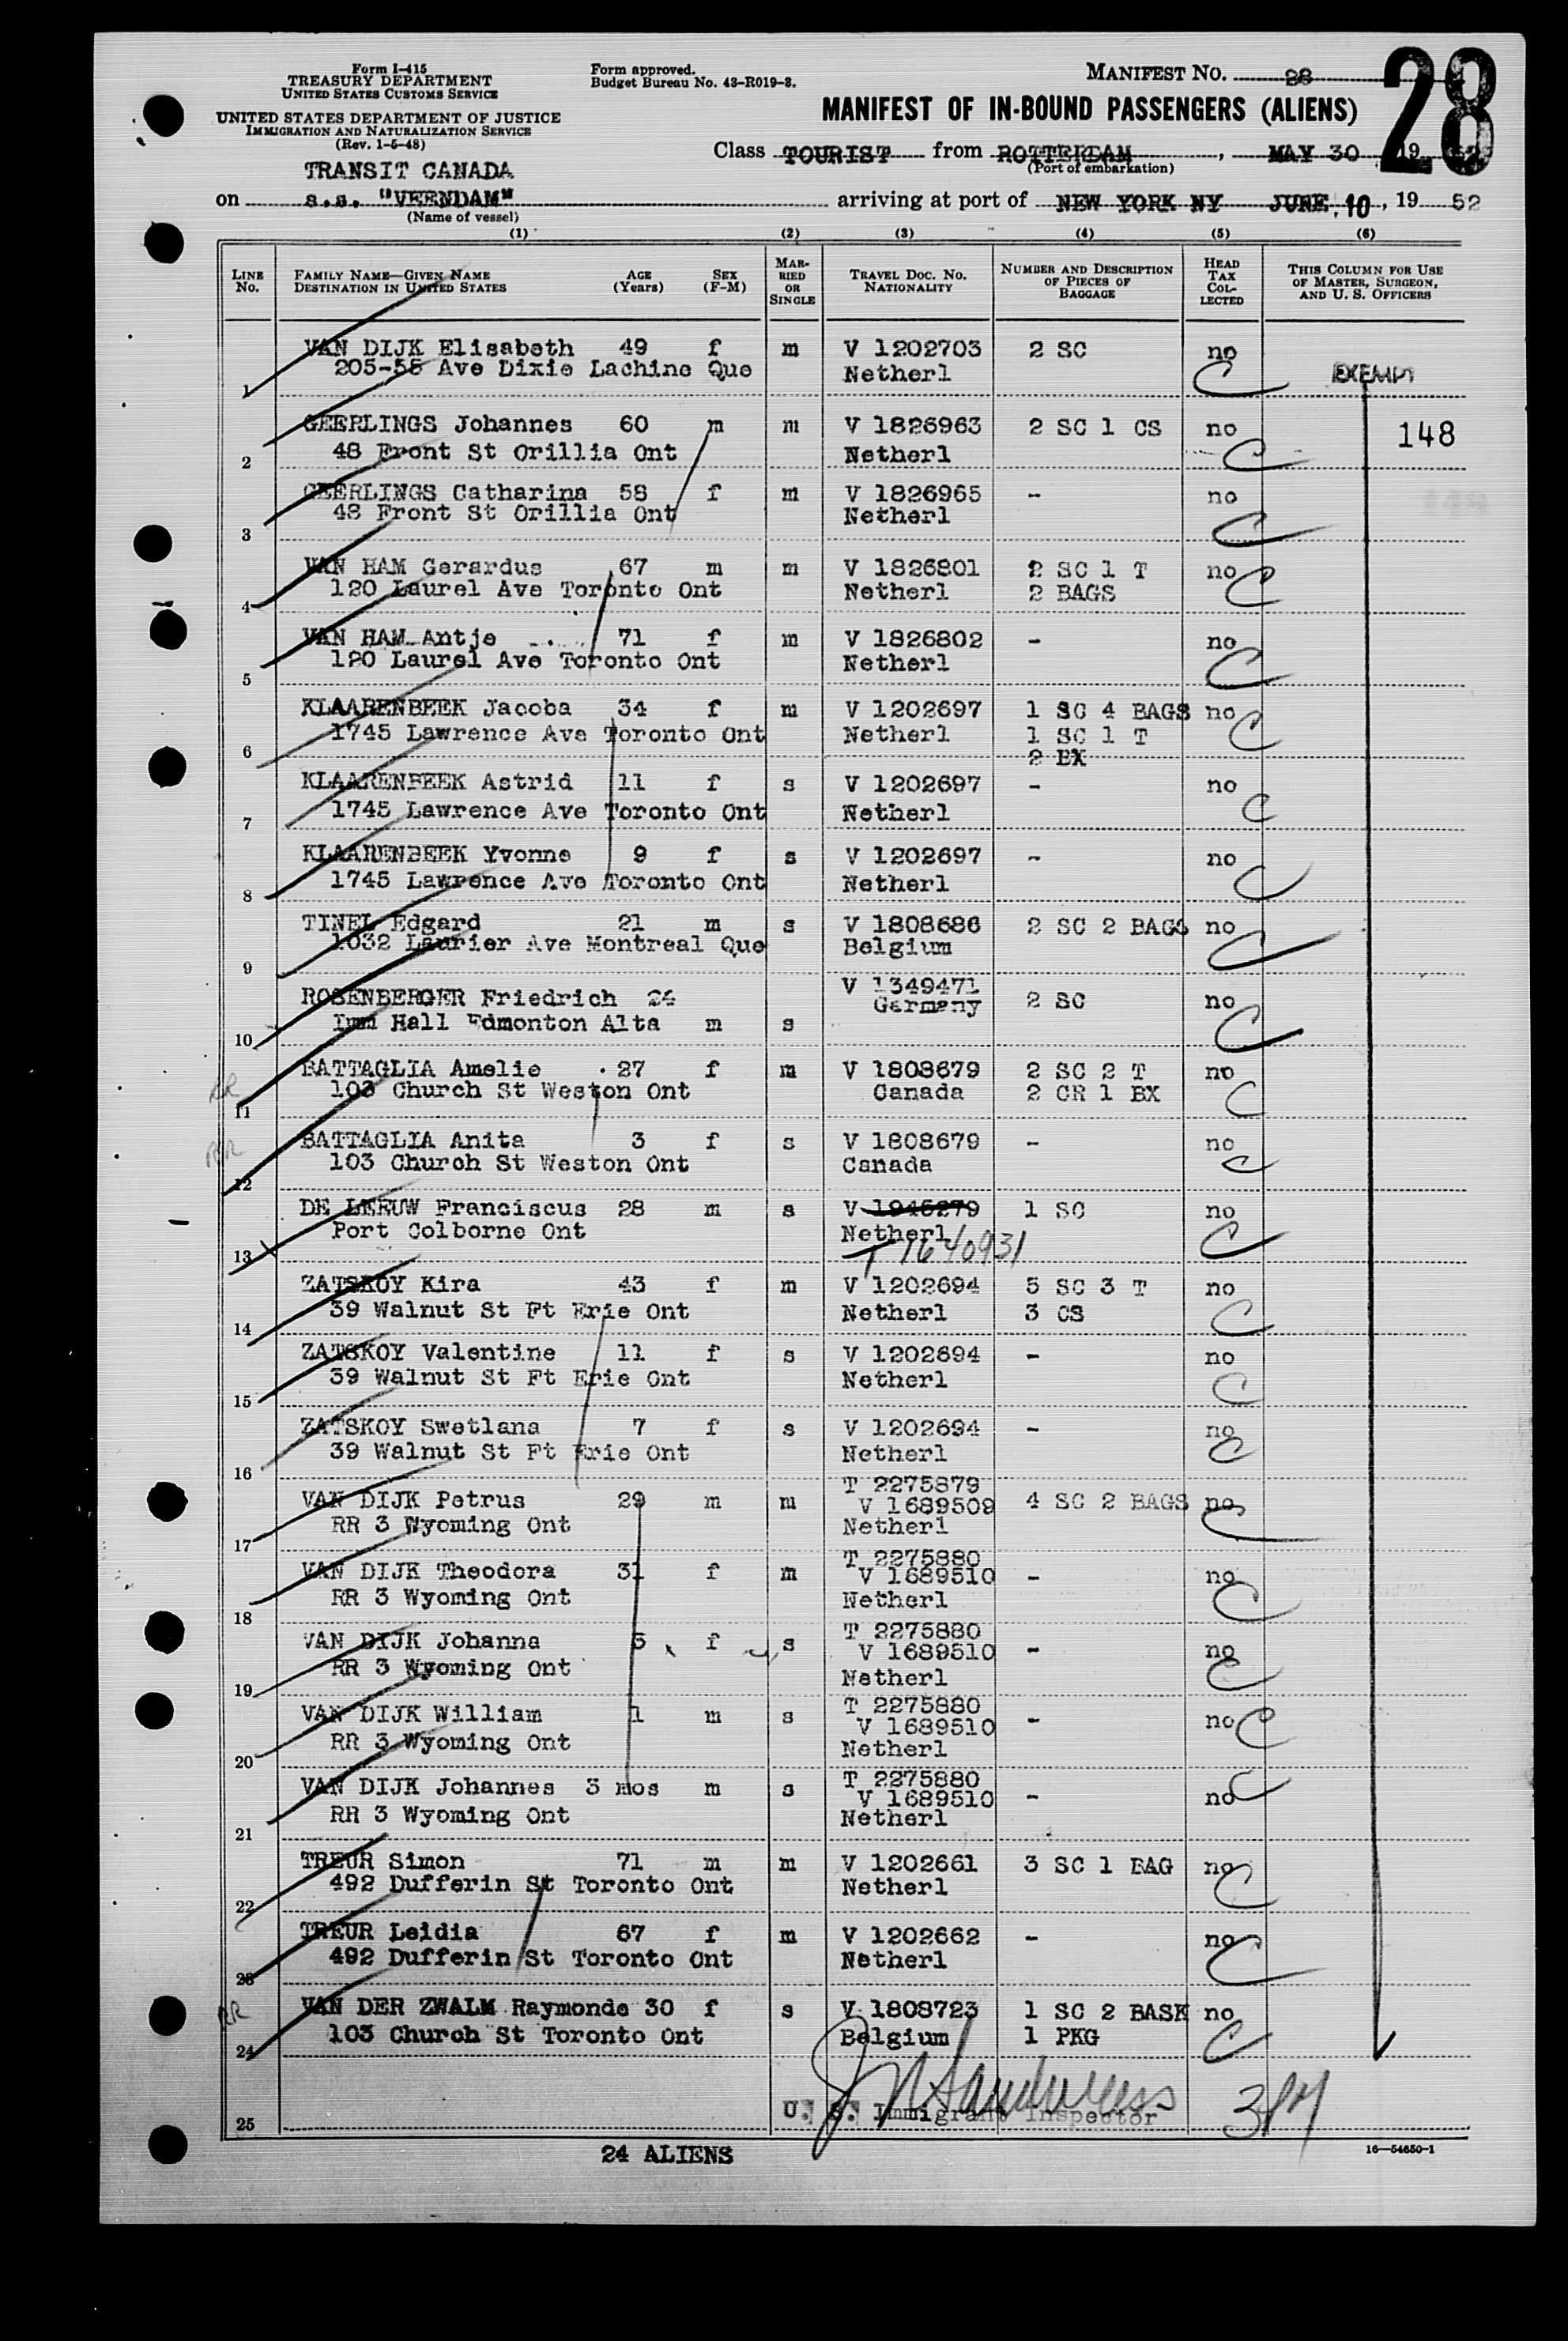 Form I-415
TREASURY DEPARTMENT
UNITED STATES CUSTOMS SERVICE
UNITED STATES DEPARTMENT OF JUSTICE
IMMIGRATION AND NATURALIZATION SERVICE
(Rev. 1-5-48)
Form approved.
Budget Bureau No. 43-R019-3.
MANIFEST NO. 28
28
MANIFEST OF IN-BOUND PASSENGERS (ALIENS)
Class TOURIST from ROTTERDAM, MAY 30 19 52
(Port of embarkation)
TRANSIT CANADA
on s.s. "VEENDAM" arriving at port of NEW YORK NY JUNE 10, 19 52
(Name of vessel)
(1) (2) (3) (4) (5) (6)
LINE NO. FAMILY NAME—GIVEN NAME DESTINATION IN UNITED STATES AGE (Years) SEX (F-M) MARRIED OR SINGLE TRAVEL DOC. NO. NATIONALITY NUMBER AND DESCRIPTION OF PIECES OF BAGGAGE HEAD TAX COLLECTED THIS COLUMN FOR USE OF MASTER, SURGEON, AND U. S. OFFICERS
VAN DIJK Elisabeth 49 f m V 1202703 2 SC no
1 205-55 Ave Dixie Lachine Que Netherl C EXEMPT
GEERLINGS Johannes 60 m m V 1826963 2 SC 1 CS no 148
2 48 Front St Orillia Ont Netherl C
GEERLINGS Catharina 58 f m V 1826965 - no
3 48 Front St Orillia Ont Netherl C
VAN HAM Gerardus 67 m m V 1826801 2 SC 1 T no C
4 120 Laurel Ave Toronto Ont Netherl 2 BAGS
VAN HAM Antje 71 f m V 1826802 - no
5 120 Laurel Ave Toronto Ont Netherl C
KLAARENBEEK Jacoba 34 f m V 1202697 1 SC 4 BAGS no C
6 1745 Lawrence Ave Toronto Ont Netherl 1 SC 1 T
2 BX
KLAARENBEEK Astrid 11 f s V 1202697 - no
7 1745 Lawrence Ave Toronto Ont Netherl C
KLAARENBEEK Yvonne 9 f s V 1202697 - no
8 1745 Lawrence Ave Toronto Ont Netherl C
TINEL Edgard 21 m s V 1808686 2 SC 2 BAGS no
9 1032 Laurier Ave Montreal Que Belgium C
ROSENBERGER Friedrich 24 V 1349471 2 SC no
10 Imm Hall Edmonton Alta m s Germany C
RR BATTAGLIA Amelie 27 f m V 1808679 2 SC 2 T no
11 103 Church St Weston Ont Canada 2 CR 1 BX C
RR BATTAGLIA Anita 3 f s V 1808679 - no
12 103 Church St Weston Ont Canada C
DE LEEUW Franciscus 28 m s V 1945279 1 SC no
13 Port Colborne Ont Netherl C
T 1640931
ZATSKOY Kira 43 f m V 1202694 5 SC 3 T no
14 39 Walnut St Ft Erie Ont Netherl 3 CS C
ZATSKOY Valentine 11 f s V 1202694 - no
15 39 Walnut St Ft Erie Ont Netherl C
ZATSKOY Swetlana 7 f s V 1202694 - no
16 39 Walnut St Ft Erie Ont Netherl C
T 2275879
VAN DIJK Petrus 29 m m V 1689509 4 SC 2 BAGS no
17 RR 3 Wyoming Ont Netherl C
T 2275880
VAN DIJK Theodora 31 f m V 1689510 - no
18 RR 3 Wyoming Ont Netherl C
T 2275880
VAN DIJK Johanna 5 f s V 1689510 - no
19 RR 3 Wyoming Ont Netherl C
T 2275880
VAN DIJK William 1 m s V 1689510 - no C
20 RR 3 Wyoming Ont Netherl
T 2275880
VAN DIJK Johannes 3 mos m s V 1689510 - no C
21 RR 3 Wyoming Ont Netherl
TREUR Simon 71 m m V 1202661 3 SC 1 BAG no
22 492 Dufferin St Toronto Ont Netherl C
TREUR Leidia 67 f m V 1202662 - no
23 492 Dufferin St Toronto Ont Netherl C
RR VAN DER ZWALM Raymonde 30 f s V 1808723 1 SC 2 BASK no
24 103 Church St Toronto Ont Belgium 1 PKG C
25 U. S. Immigrant Inspector 
24 ALIENS
16—54650-1